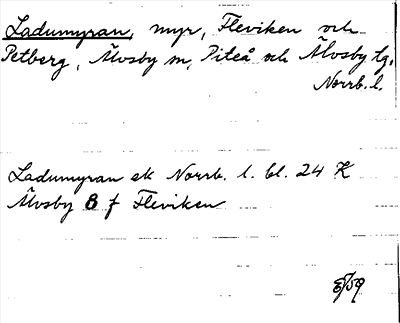 Ladumyran, myr, Fleviken och
Petberg, Älvsby sn, Piteå och Älvsby tg,
Norrb. l.
Ladumyran ek Norrb. l. bl. 24 K
Älvsby 8 f Fleviken
/59